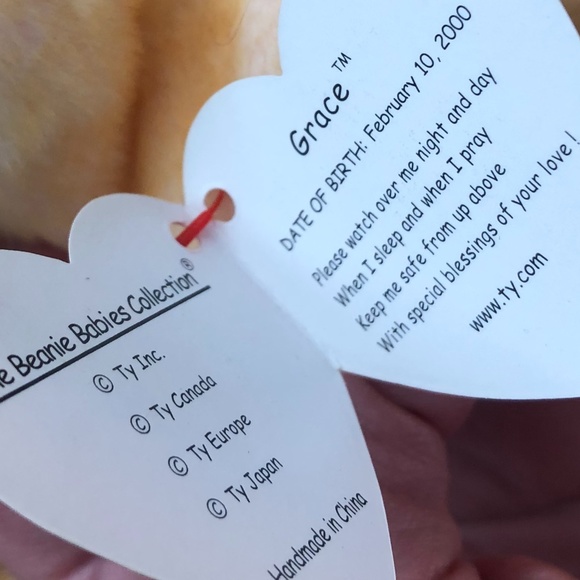 Beanie Babies Collection®
© Ty Inc.
© Ty Canada
© Ty Europe
© Ty Japan
Handmade in China
Grace™
DATE OF BIRTH: February 10, 2000
Please watch over me night and day
When I sleep and when I pray
Keep me safe from up above
With special blessings of your love !
www.ty.com